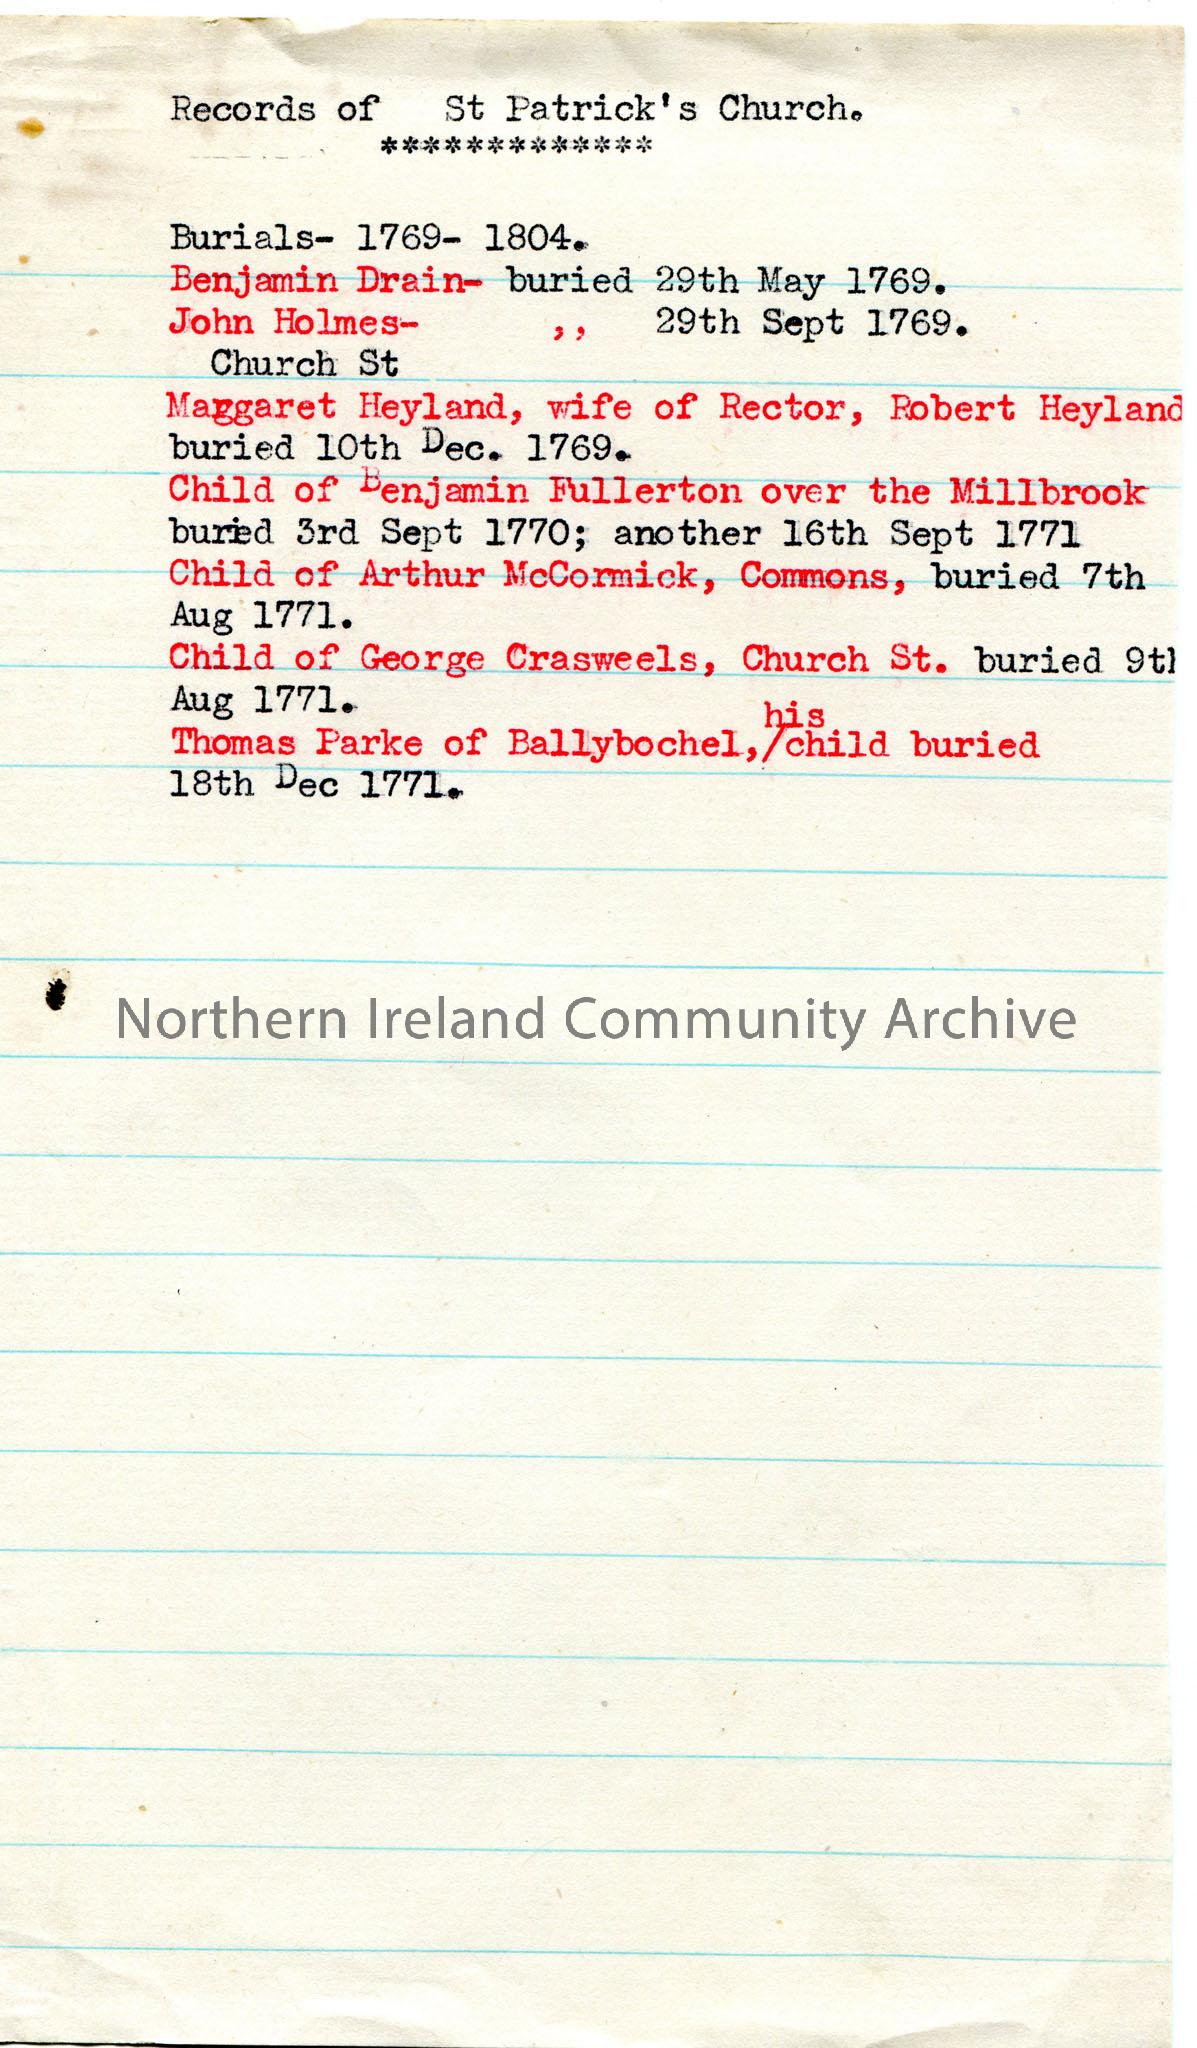 Records of St Patrick's Church.
*************
Burials- 1769- 1804.
Benjamin Drain- buried 29th May 1769.
John Holmes- ,, 29th Sept 1769.
Church St
Marggaret Heyland, wife of Rector, Robert Heyland
buried 10th Dec. 1769.
Child of Benjamin Fullerton over the Millbrook
buried 3rd Sept 1770; another 16th Sept 1771
Child of Arthur McCormick, Commons, buried 7th
Aug 1771.
Child of George Crasweels, Church St. buried 9th
Aug 1771.
his
Thomas Parke of Ballybochel,/child buried
18th Dec 1771.
Northern Ireland Community Archive